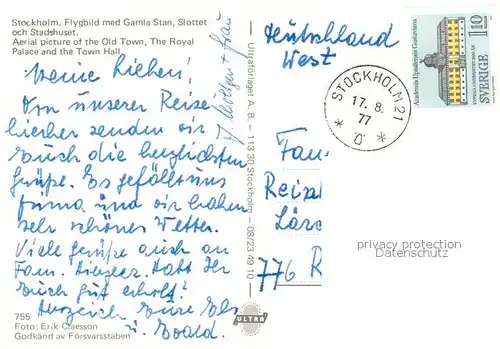 Stockholm. Flygbild med Gamla Stan, Slottet
och Stadshuset.
Aerial picture of the Old Town, The Royal
Palace and the Town Hall.
Meine Lieben!
Von unserer Reise
hierher senden wir
Euch die herzlichsten
Grüße. Es gefällt uns
prima und wir haben
sehr schönes Wetter.
Viele Grüße auch an
Fam. Habt Ihr
Euch gut erholt?
Herzlich Eure Els
u. Ewald.
+ Frau
755
Foto: Erik Claesson
Godkänd av Försvarsstaben
Ultraförlaget A. B. — 113 30 Stockholm — 08/23 49 10
ULTRA
Deutschland
West
STOCKHOLM 21
17. 8.
77
Academia Upsaliensis Gustaviana
110
SVERIGE
Fam.
Reisa
776 R
privacy protection
Datenschutz